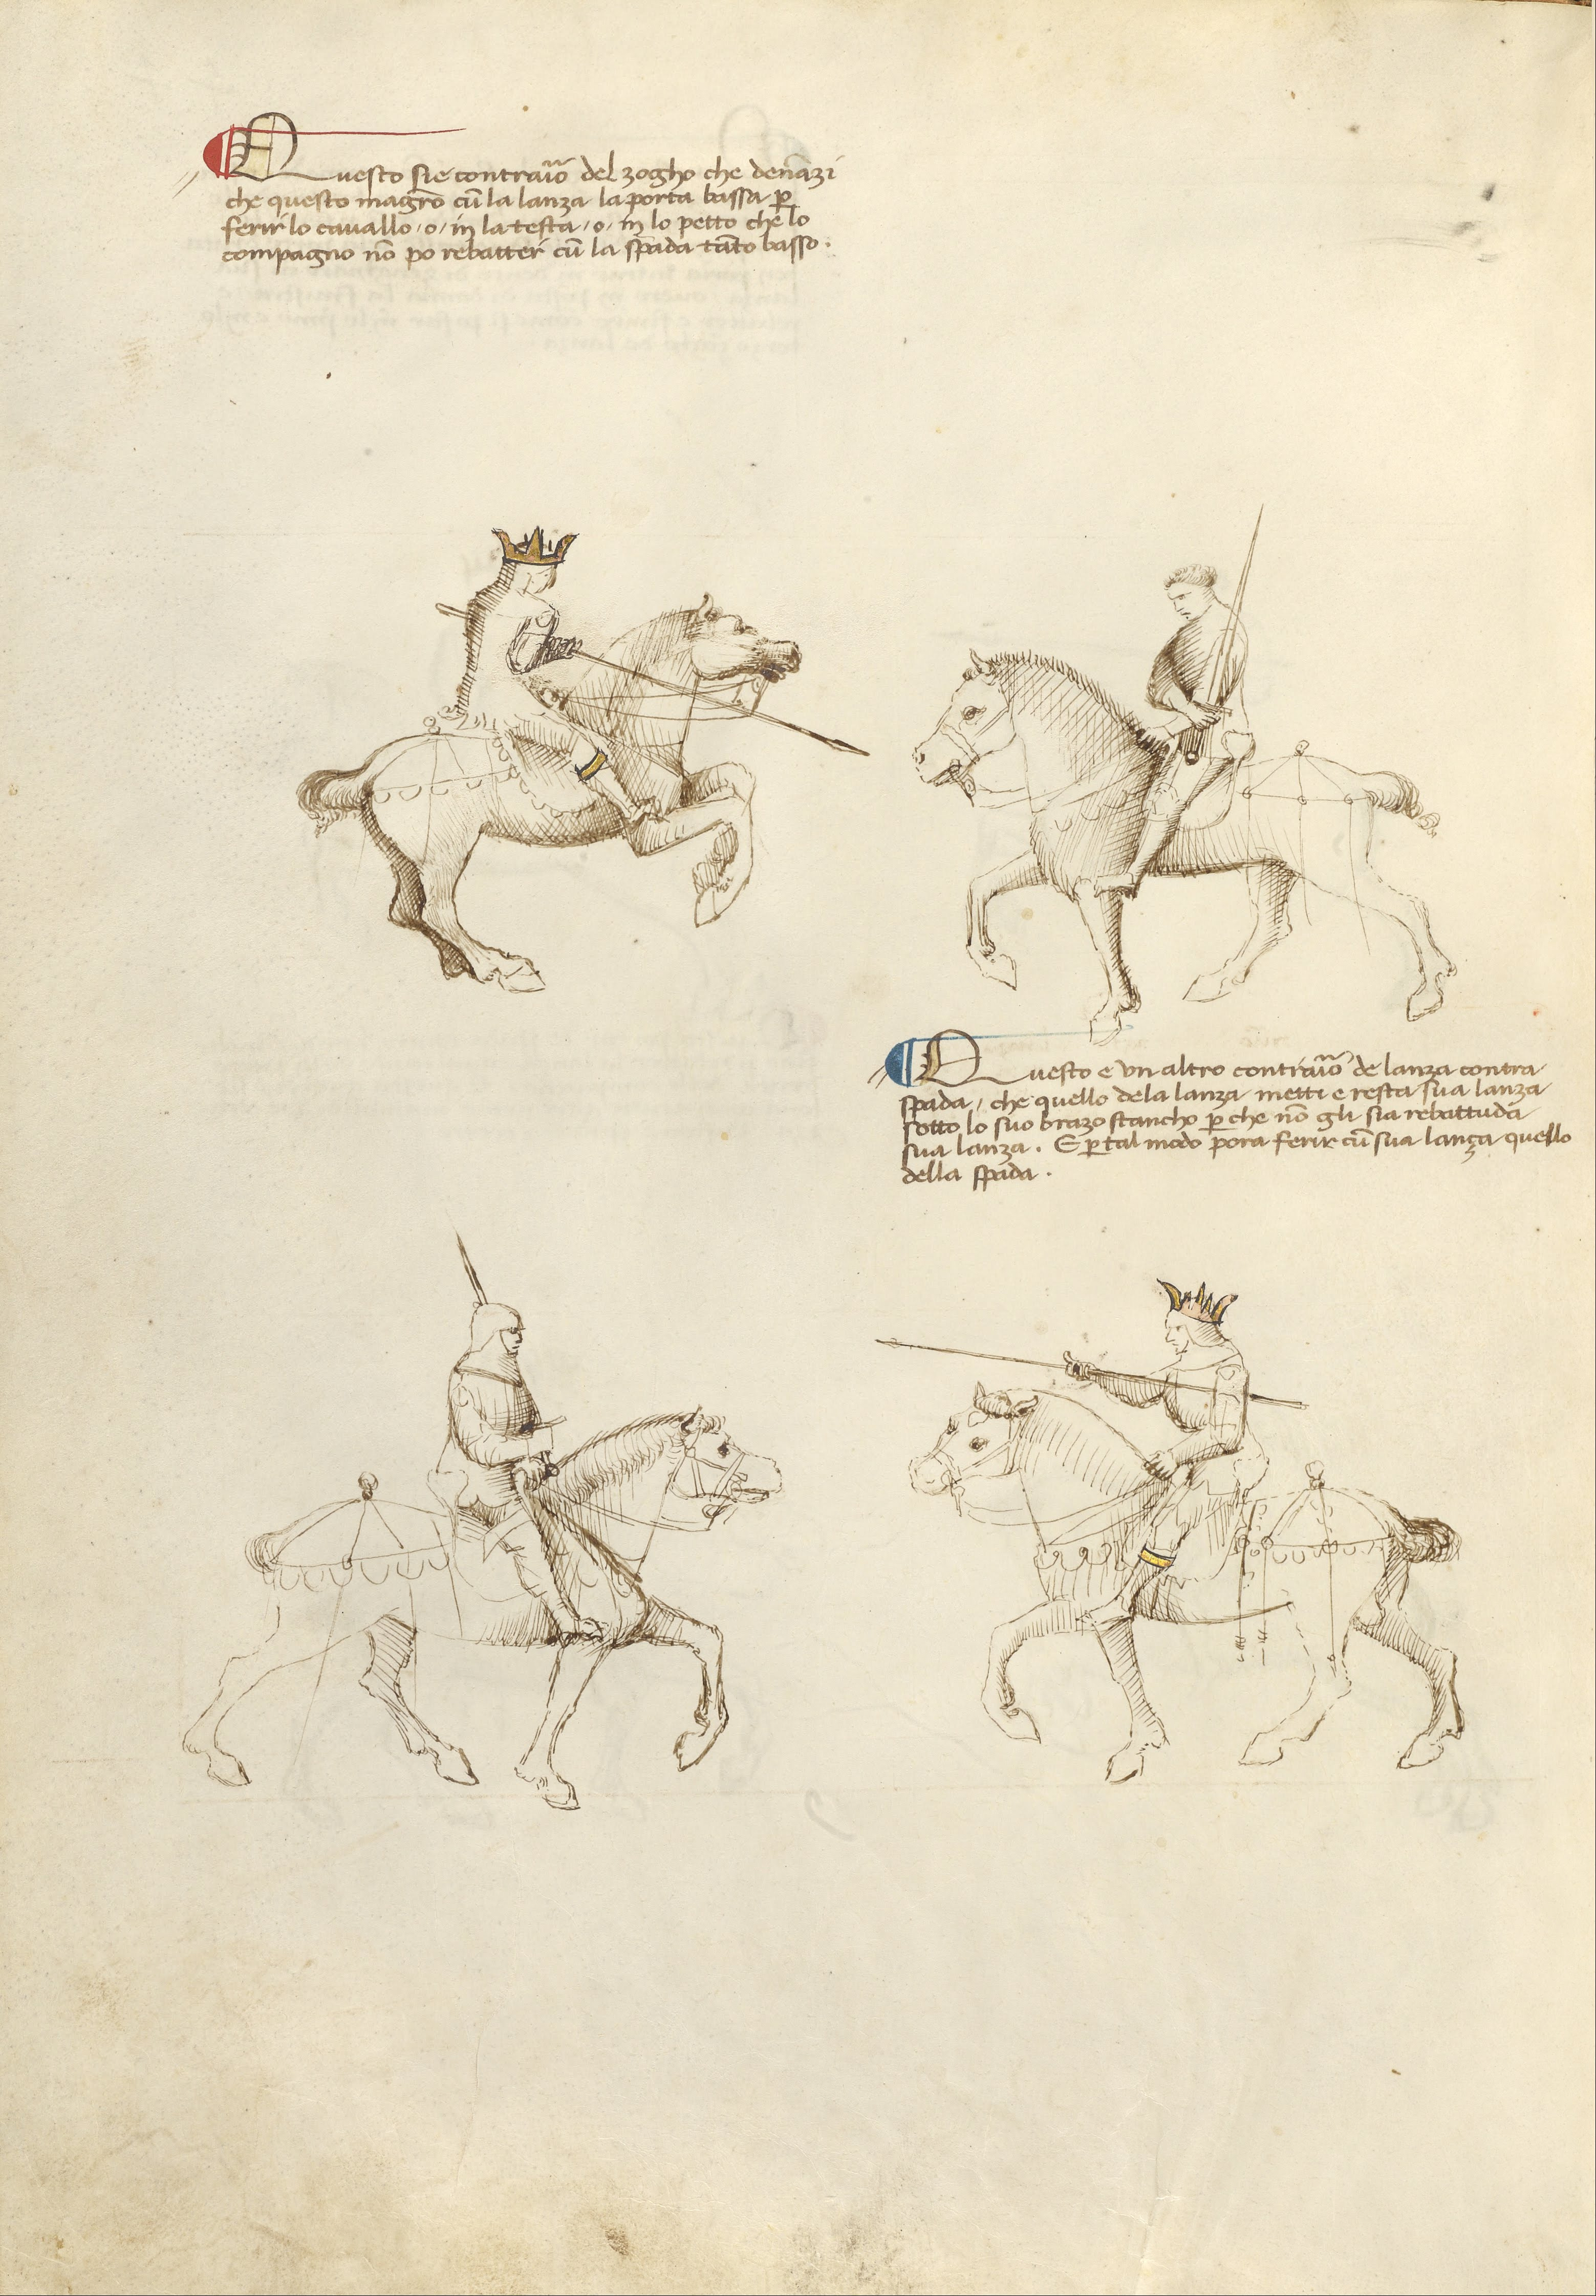 Questo sie contraīo del zogho che denāzi
che questo magrō cū la lanza la porta bassa ꝑ
ferir lo cavallo / o / in la testa / o / in lo petto che lo
compagno nō po rebatter cū la spada tāto basso.
Questo e un altro contraīo de lanza contra
spada / che quello dela lanza metti e resta sua lanza
sotto lo suo brazo stancho ꝑ che nō gli sia rebattuda
sua lanza. E ꝑ tal modo pora ferir cū sua lança quello
della spada.